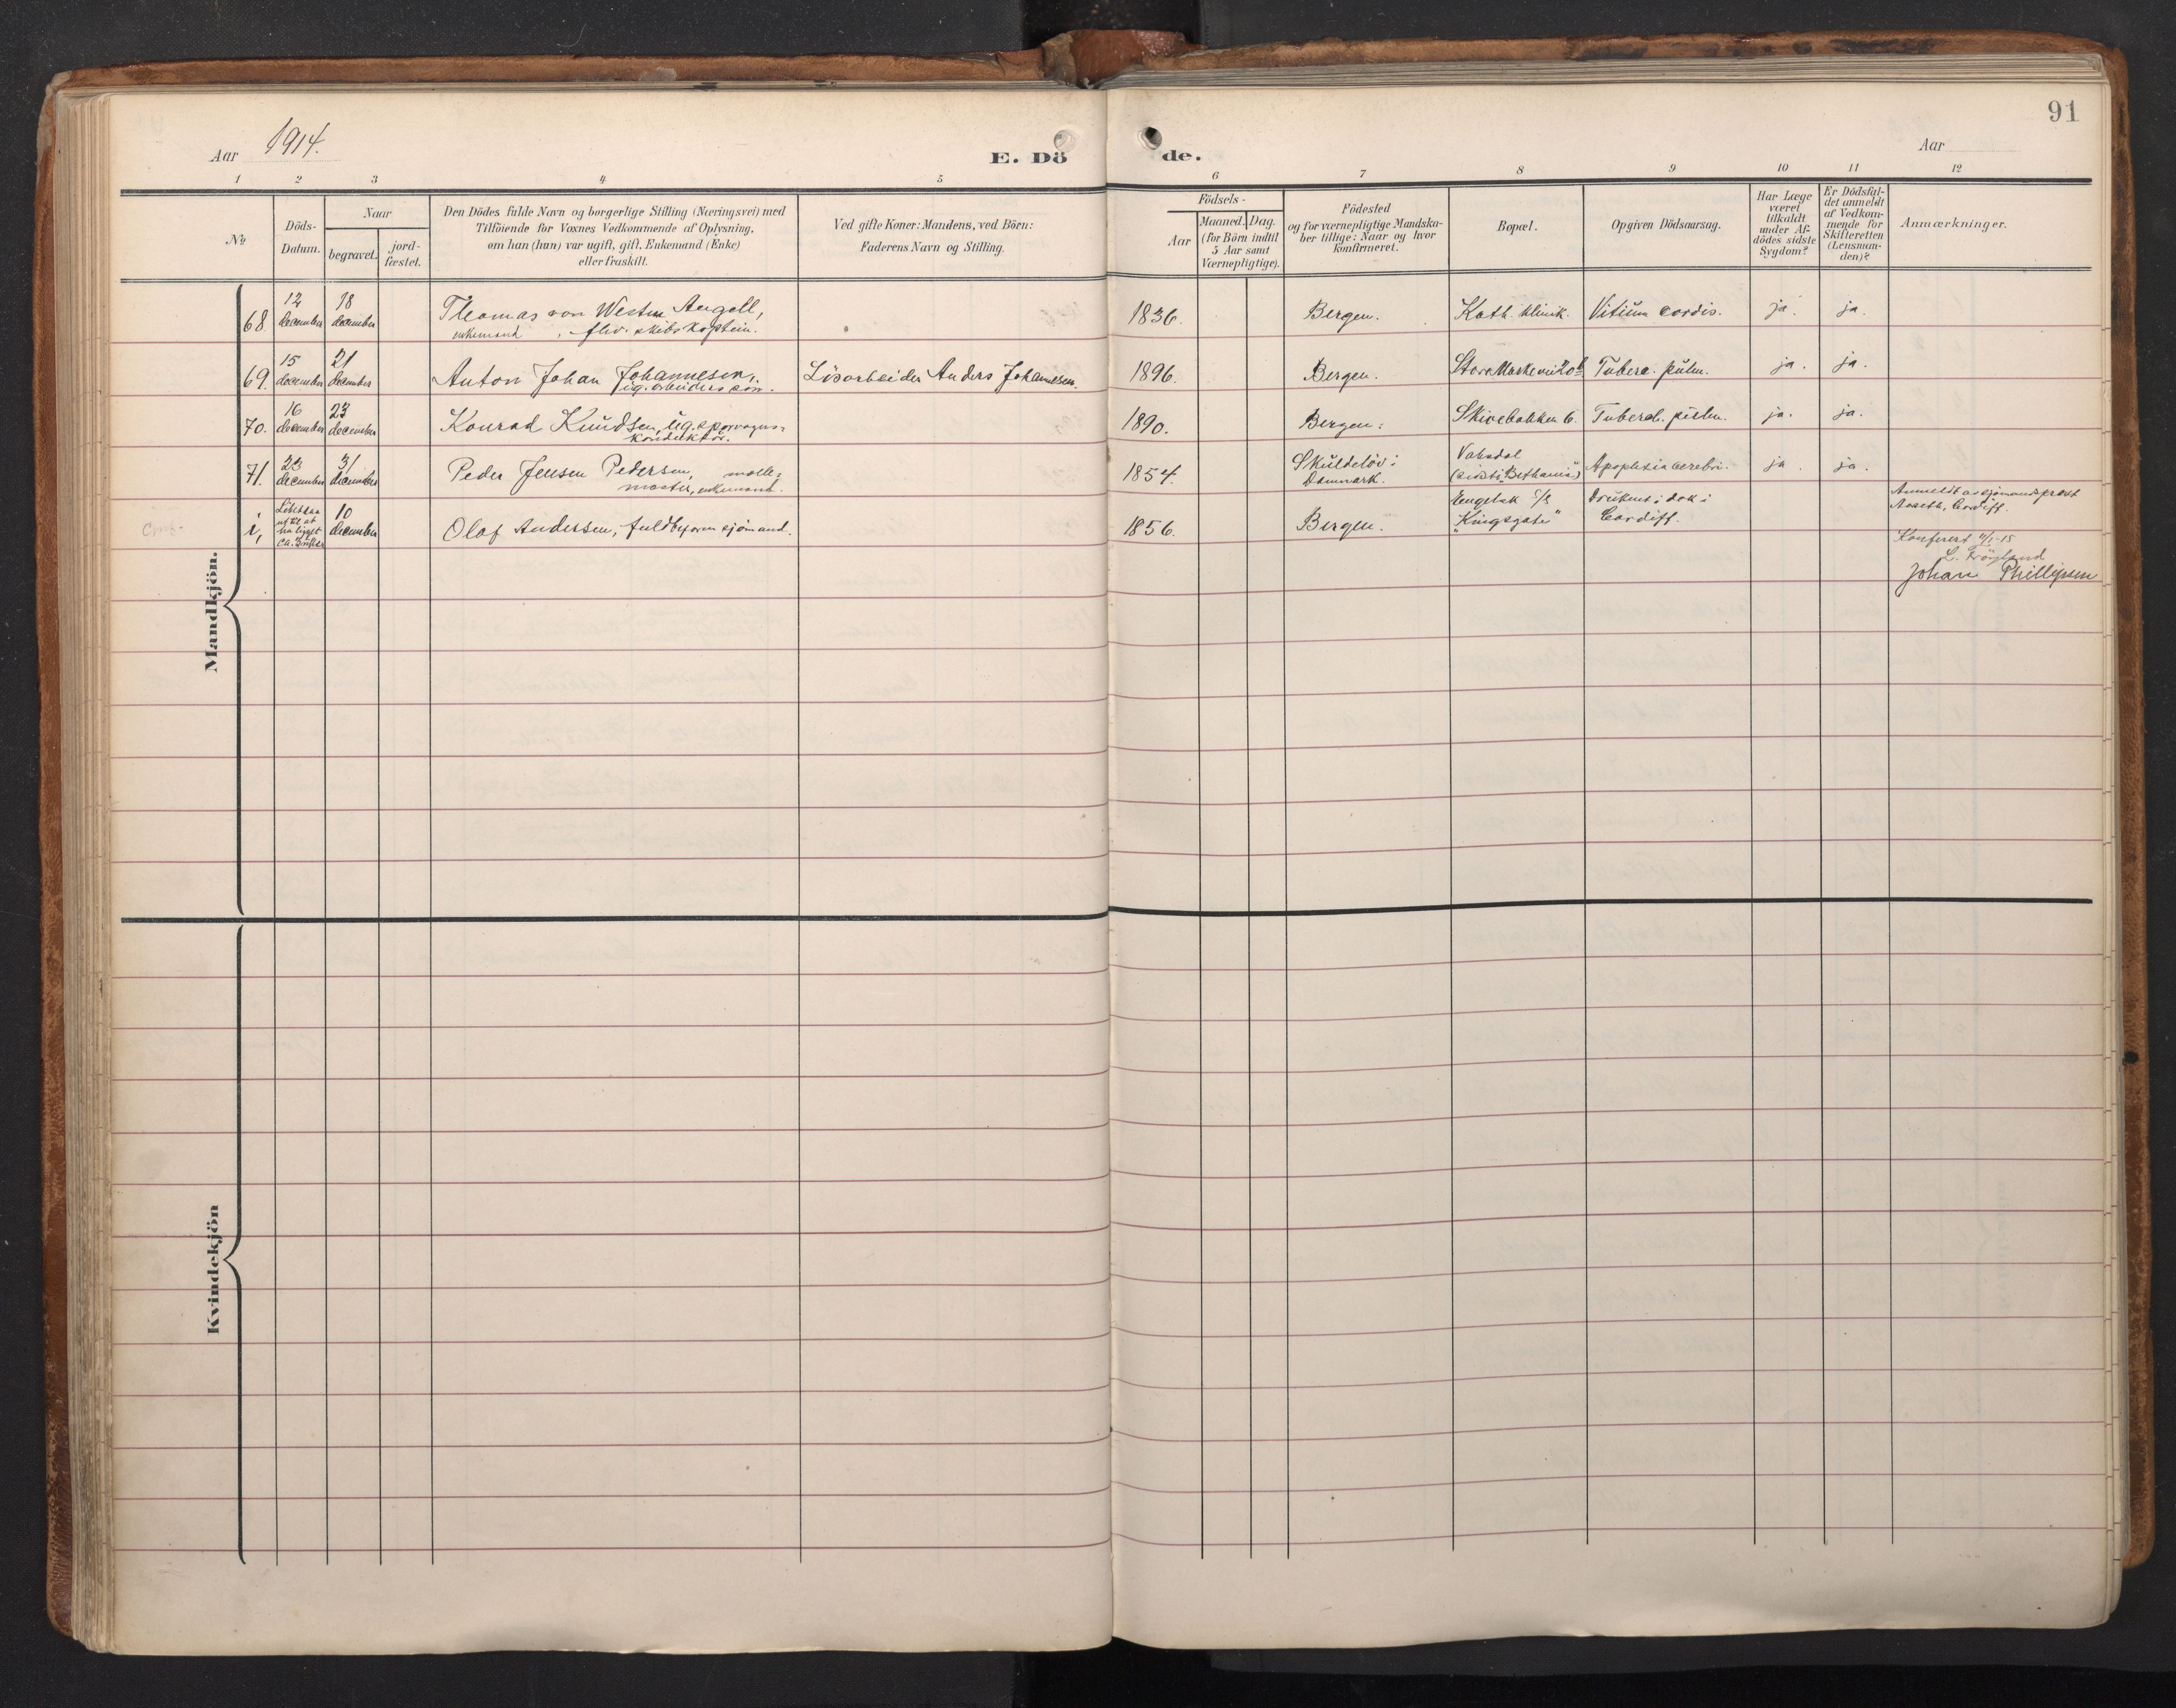 91
Aar 1914.
E. Dö de.
Aar
1 2 3 4 5 6 7 8 9 10 11 12
No
Döds-
Datum.
Naar
begravet.
jord-
fæstet.
Den Dödes fulde Navn og borgerlige Stilling (Næringsvei) med
Tilföiende for Voxnes Vedkommende af Oplysning,
om han (hun) var ugift, gift, Enkemand (Enke)
eller fraskilt.
Ved gifte Koner: Mandens, ved Börn:
Faderens Navn og Stilling.
Födsels-
Aar
Maaned. Dag.
(for Börn indtil
5 Aar samt
Værnepligtige).
Födested
og for værnepligtige Mandska-
ber tillige: Naar og hvor
konfirmeret.
Bopæl.
Opgiven Dödsaarsag.
Har Læge
været
tilkaldt
under Af-
dödes sidste
Sygdom?
Er Dödsfal-
det anmeldt
af Vedkom-
mende for
Skifteretten
(Lensman-
den)?
Anmærkninger.
Mandkjön.
68 12 december 18 december Thomas von Westen Angell,
enkemand, fhv. skibskaptein.
1836. Bergen. Kath. klinik. Vitium cordis. ja. ja.
69. 15 december 21 december Anton Johan Johannesen,
ug. arbeiders søn.
Løsarbeider Anders Johannesen. 1896. Bergen. Store Markevei 20 Tuberc. pulm. ja. ja.
70. 16 december 23 december Konrad Knudsen, ug. sporvogns-
konduktør.
1890. Bergen. Skivebakken 6. Tubercl. pulm. ja. ja.
71. 23 december 31 december Peder Jensen Pedersen, mølle-
mester, enkemand.
1854. Skuldelöv i
Danmark.
Vaksdal
(sidst "Bethania") Apoplexia cerebri. ja. ja.
i, ca. 10 december Olaf Andersen, fuldbefaren sjømand.
1856. Bergen. Engelsk S/S
"Kingsgate"
Druknet i dok i
Cardiff.
Anmeldt av sjømandsprest
Cardiff.
Konferert 11/1-15
L. Frøyland
Johan Phillipsen
Kvindekjön